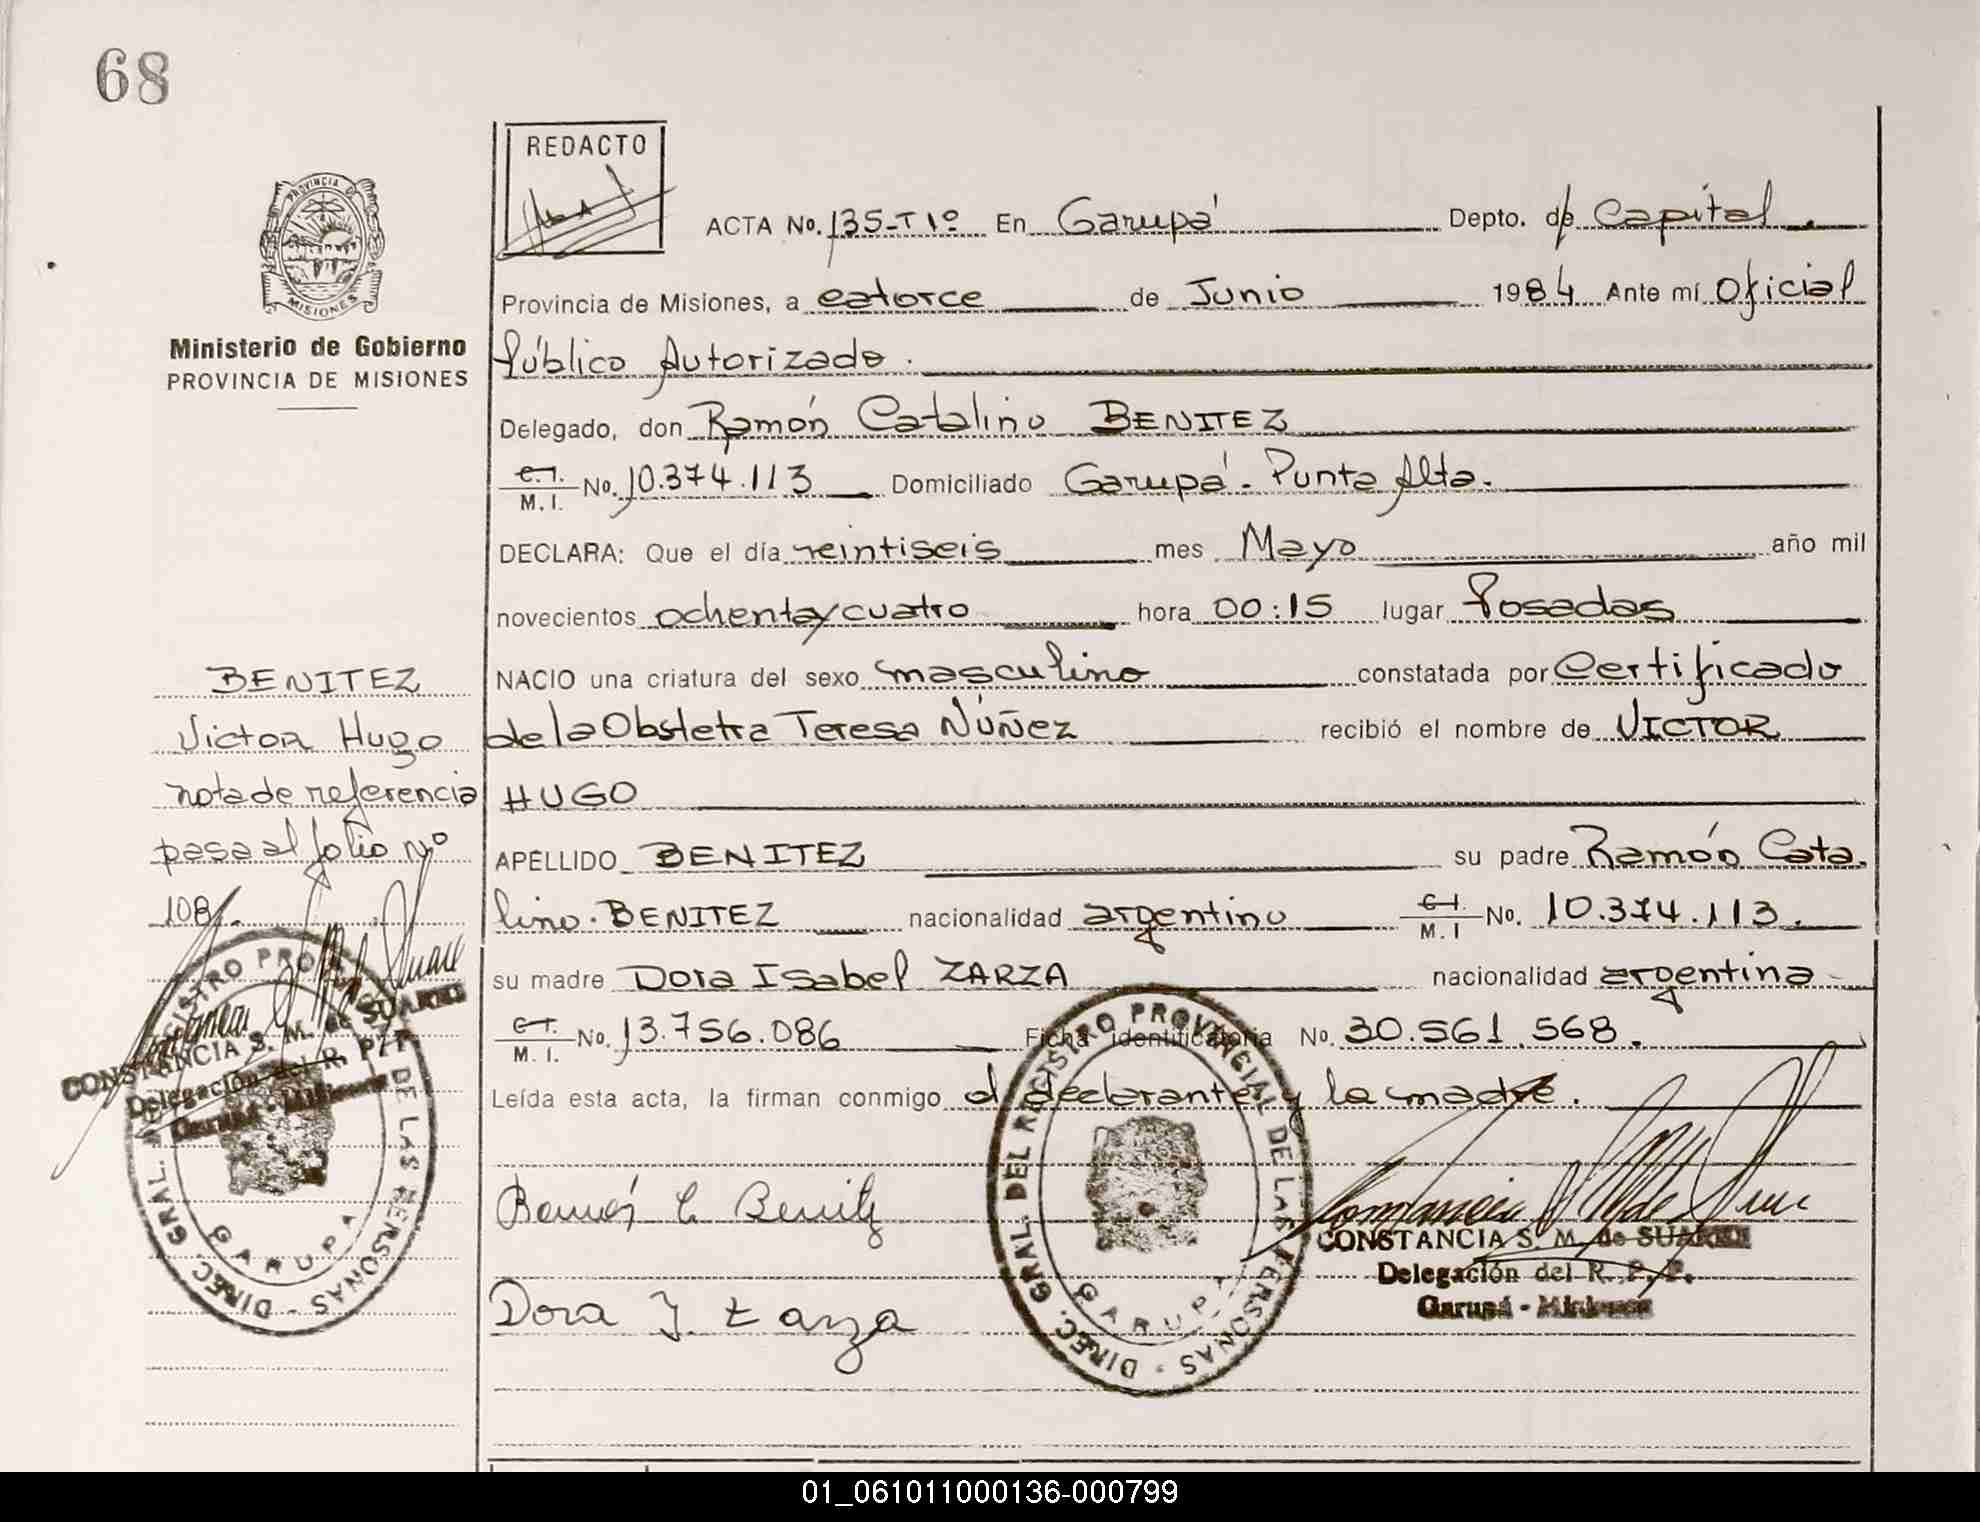 68
REDACTO
PROVINCIA DE
MISIONES
Ministerio de Gobierno
PROVINCIA DE MISIONES
ACTA No. 135-T1º En Garupá Depto. de Capital.
Provincia de Misiones, a catorce de Junio 1984 Ante mí Oficial
Público Autorizado.
Delegado, don Ramón Catalino BENITEZ
C.I. M.I. No. 10.374.113 Domiciliado Garupá - Punta Alta.
DECLARA: Que el día veintiseis mes Mayo año mil
novecientos ochenta y cuatro hora 00:15 lugar Posadas
NACIO una criatura del sexo masculino constatada por Certificado
de la Obstetra Teresa NÚÑEZ recibió el nombre de VICTOR
HUGO
APELLIDO BENITEZ su padre Ramón Cata
lino. BENITEZ nacionalidad argentino C.I. M.I No. 10.374.113.
su madre Dora Isabel ZARZA nacionalidad argentina
C.I. M.I. No. 13.756.086 Ficha identificatoria No. 30.561.568.
Leída esta acta, la firman conmigo el declarante y la madre.
BENITEZ
Victor Hugo
nota de referencia
pasa al folio Nº
108.
CONSTANCIA S. M. de SUAREZ
Delegación del R. P. P.
Garupá - Misiones
DIREC. GRAL. DEL REGISTRO PROVINCIAL DE LAS PERSONAS
GARUPA
Ramón C Benitez
Dora I. Zarza
DIREC. GRAL. DEL REGISTRO PROVINCIAL DE LAS PERSONAS
GARUPA
CONSTANCIA S. M. de SUAREZ
Delegación del R. P. P.
Garupá - Misiones
01_061011000136-000799